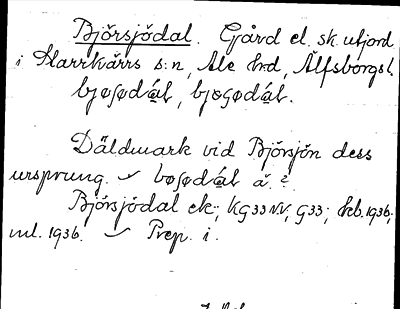 Björsjödal. Gård el. sk. utjord
i Starrkärrs s:n, Ale h:d, Älfsborgs l.
bjøʃødál, bjøʃødál.
Däldmark vid Björsjön dess
ursprung. bøʃødál å ?
Björsjödal ek;, KG33NV, G33; Jkb. 1936;
ml. 1936. Prep. i.